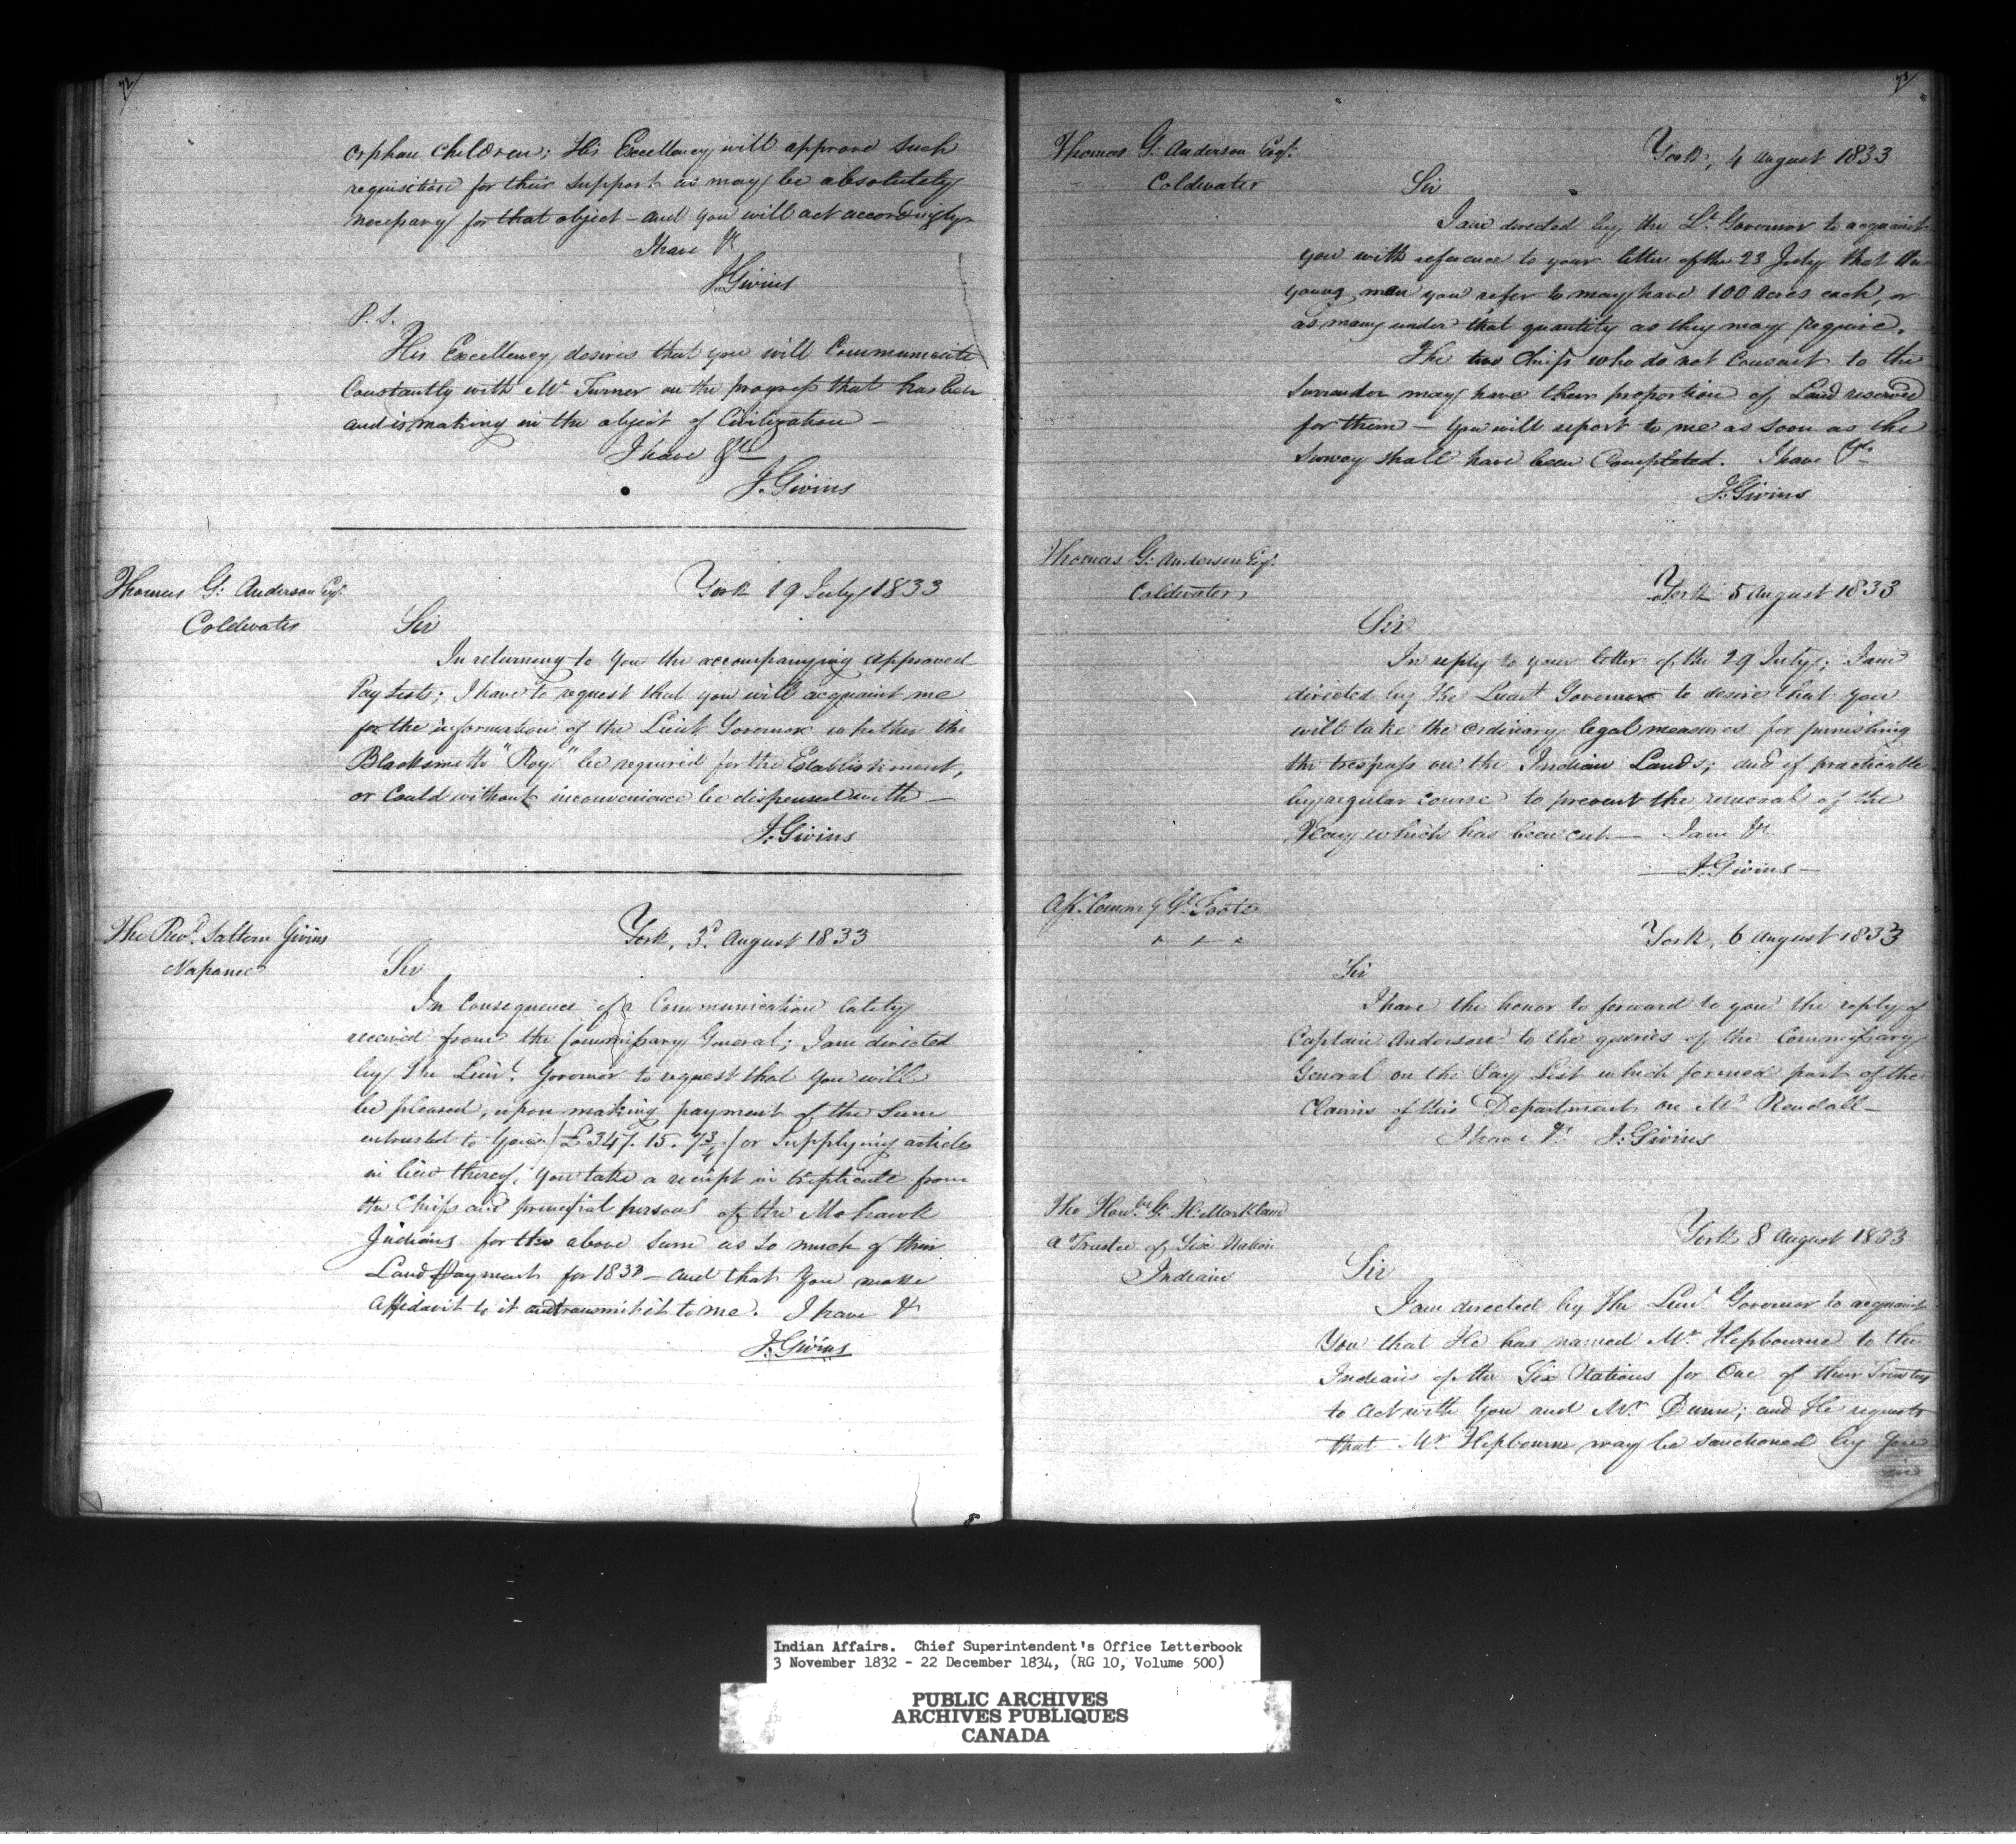 72
orphan children; His Excellency will approve such
requisition for their support as may be absolutely
necessary for that object - and you will act accordingly
I have &c
J. Givins
P.S.
His Excellency desires that you will Communicate
Constantly with Mr Turner on the progress that has been
and is making in the object of Civilization -
I have &c
J. Givins
Thomas G. Anderson Esqr.
Coldwater
York 19 July 1833
Sir
In returning to you the accompanying approved
Pay Lists; I have to request that you will acquaint me
for the information of the Lieut Governor whether the
Blacksmith "Roy" be required for the Establishment,
or Could without inconvenience be dispensed with -
J. Givins
The Revd. Saltern Givins
Napanee
York, 3d. August 1833
Sir
In Consequence of a Communication lately
received from the Commissary General; I am directed
by The Lieut. Governor to request that you will
be pleased, upon making payment of the Sum
entrusted to you (£347.15.7¾) or Supplying articles
in lieu thereof, you take a receipt in triplicate from
the Chiefs and principal persons of the Mohawk
Indians for the above Sum as so much of their
Land Payment for 1833 - and that You make
Affidavit to it and transmit it to me. I have &c
J. Givins
73
Thomas G. Anderson Esqr.
Coldwater
York, 4 August 1833
Sir
I am directed by the Lt. Governor to acquaint
you with reference to your letter of the 23 July that the
young men you refer to may have 100 Acres each, or
as many under that quantity as they may require.
The two Chiefs who do not Consent to the
Surrender may have their proportion of Land reserved
for them - You will report to me as soon as the
Survey shall have been Completed. I have &c
J. Givins
Thomas G. Anderson Esqr.
Coldwater
York 5 August 1833
Sir
In reply to your letter of the 29 July; I am
directed by the Lieut Governor to desire that you
will take the ordinary legal measures for punishing
the trespass on the Indian Lands; and if practicable
by regular course to prevent the removal of the
Hay which has been cut - I am &c
J. Givins -
Asst. Commy Gl. Foote
York, 6 August 1833
Sir
I have the honor to forward to you the reply of
Captain Anderson to the queries of the Commissary
General on the Pay List which formed part of the
Claims of this Department on Mr Rendall -
I have &c J. Givins
The Honble G. H. Markland
a Trustee of Six Nation
Indians
York 8 August 1833
Sir
I am directed by The Lieut Governor to acquaint
You that He has named Mr Hepbourne to the
Indians of the Six Nations for One of their Trustees
to Act with You and Mr. Dunn; and He requests
that Mr Hepbourne may be sanctioned by you
in
Indian Affairs. Chief Superintendent's Office Letterbook
3 November 1832 - 22 December 1834, (RG 10, Volume 500)
PUBLIC ARCHIVES
ARCHIVES PUBLIQUES
CANADA